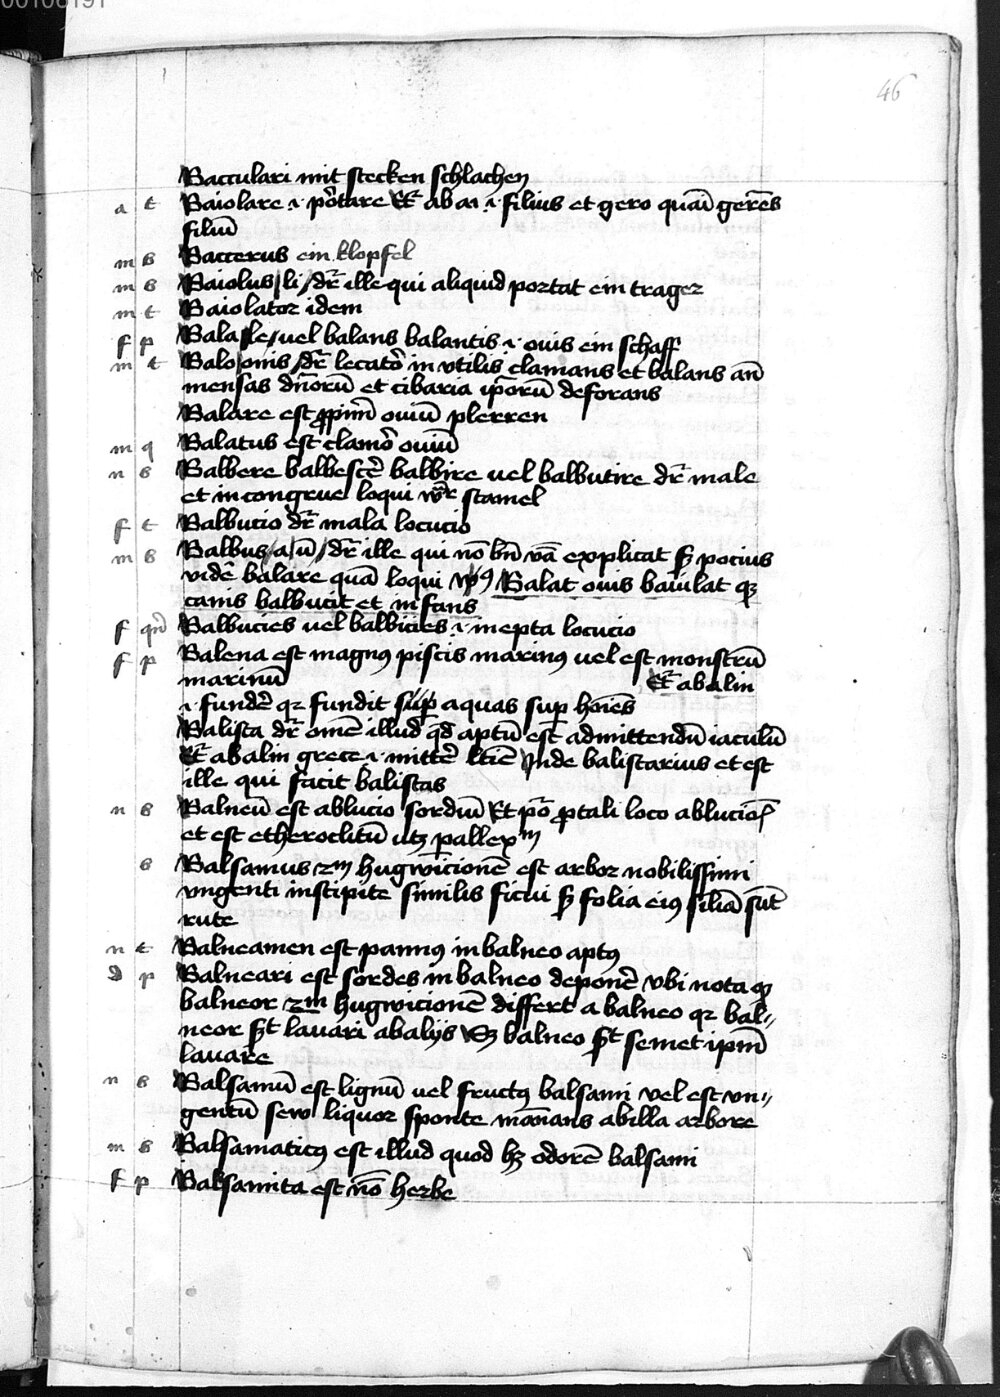 00106191
46
Bacculari mit stecken schlachen
a t Baiolare .i. portare Et̄ ab ai .i. filius et gero quāi gerēs
filiū
m s Baccerus ein klopfel
m s Baiolus / li / dr̄ ille qui aliquid portat ein trager
m t Baiolator idem
f p Bala / le / uel balans balantis .i. ouis ein schaff
m t Balo onis / dr̄ lecator̄ in vtilis clamans et balans an̄
mensas dn̄orū et cibaria ip̄orū deforans
Balare est ꝓpīm ouiū plerren
m q Balatus est clamor̄ ouiū
n s Balbere balbescē balbire uel balbutire dr̄ male
et in congrue loqui stamel
f t Balbucio dr̄ mala locucio
m s Balbus / a / ū / dr̄ ille qui nō bn̄ vā explicat sꝫ pocius
vidē balare quā loqui vꝰ Balat ouis baiulat qꝫ
canis balbucit et infans
f qn̄ Balbucies uel balbicies .i. inepta locucio
f p Balena est magnꝰ piscis marinꝰ uel est monstrū
marinū Et̄ abalin
.i. fundē qꝛ fundit suꝑ aquas suꝑ hoīes
Balista dr̄ omē illud qd̄ aptū est ad mittendū iaculū
Et̄ abalin grece .i. mittē Inde balistarius et est
ille qui facit balistas
n s Balneū est ablucio sordiū Et pō ꝓtali loco ablucioī
et est etheroclitū utꝫ
s Balsamus 2m hugwicionē est arbor nobilissimi
vngenti in stipite similis ficui sꝫ folia eiꝰ silīa sūt
rute
n t Balneamen est pannꝰ in balneo aptꝰ
d p Balneari est sordes in balneo deponē vbi nota qꝫ
balneor 2m hugwicionē differt a balneo qꝛ bal„
neor st̄ lauari ab alijs Sꝫ balneo st̄ semet ip̄m
lauare
n s Balsamū est lignū uel fructꝰ balsami vel est vn„
gentū sew liquor sponte manans ab illa arbore
m s Balsamaticꝰ est illud quod hꝫ odorē balsami
f p Balsamita est nō herbe